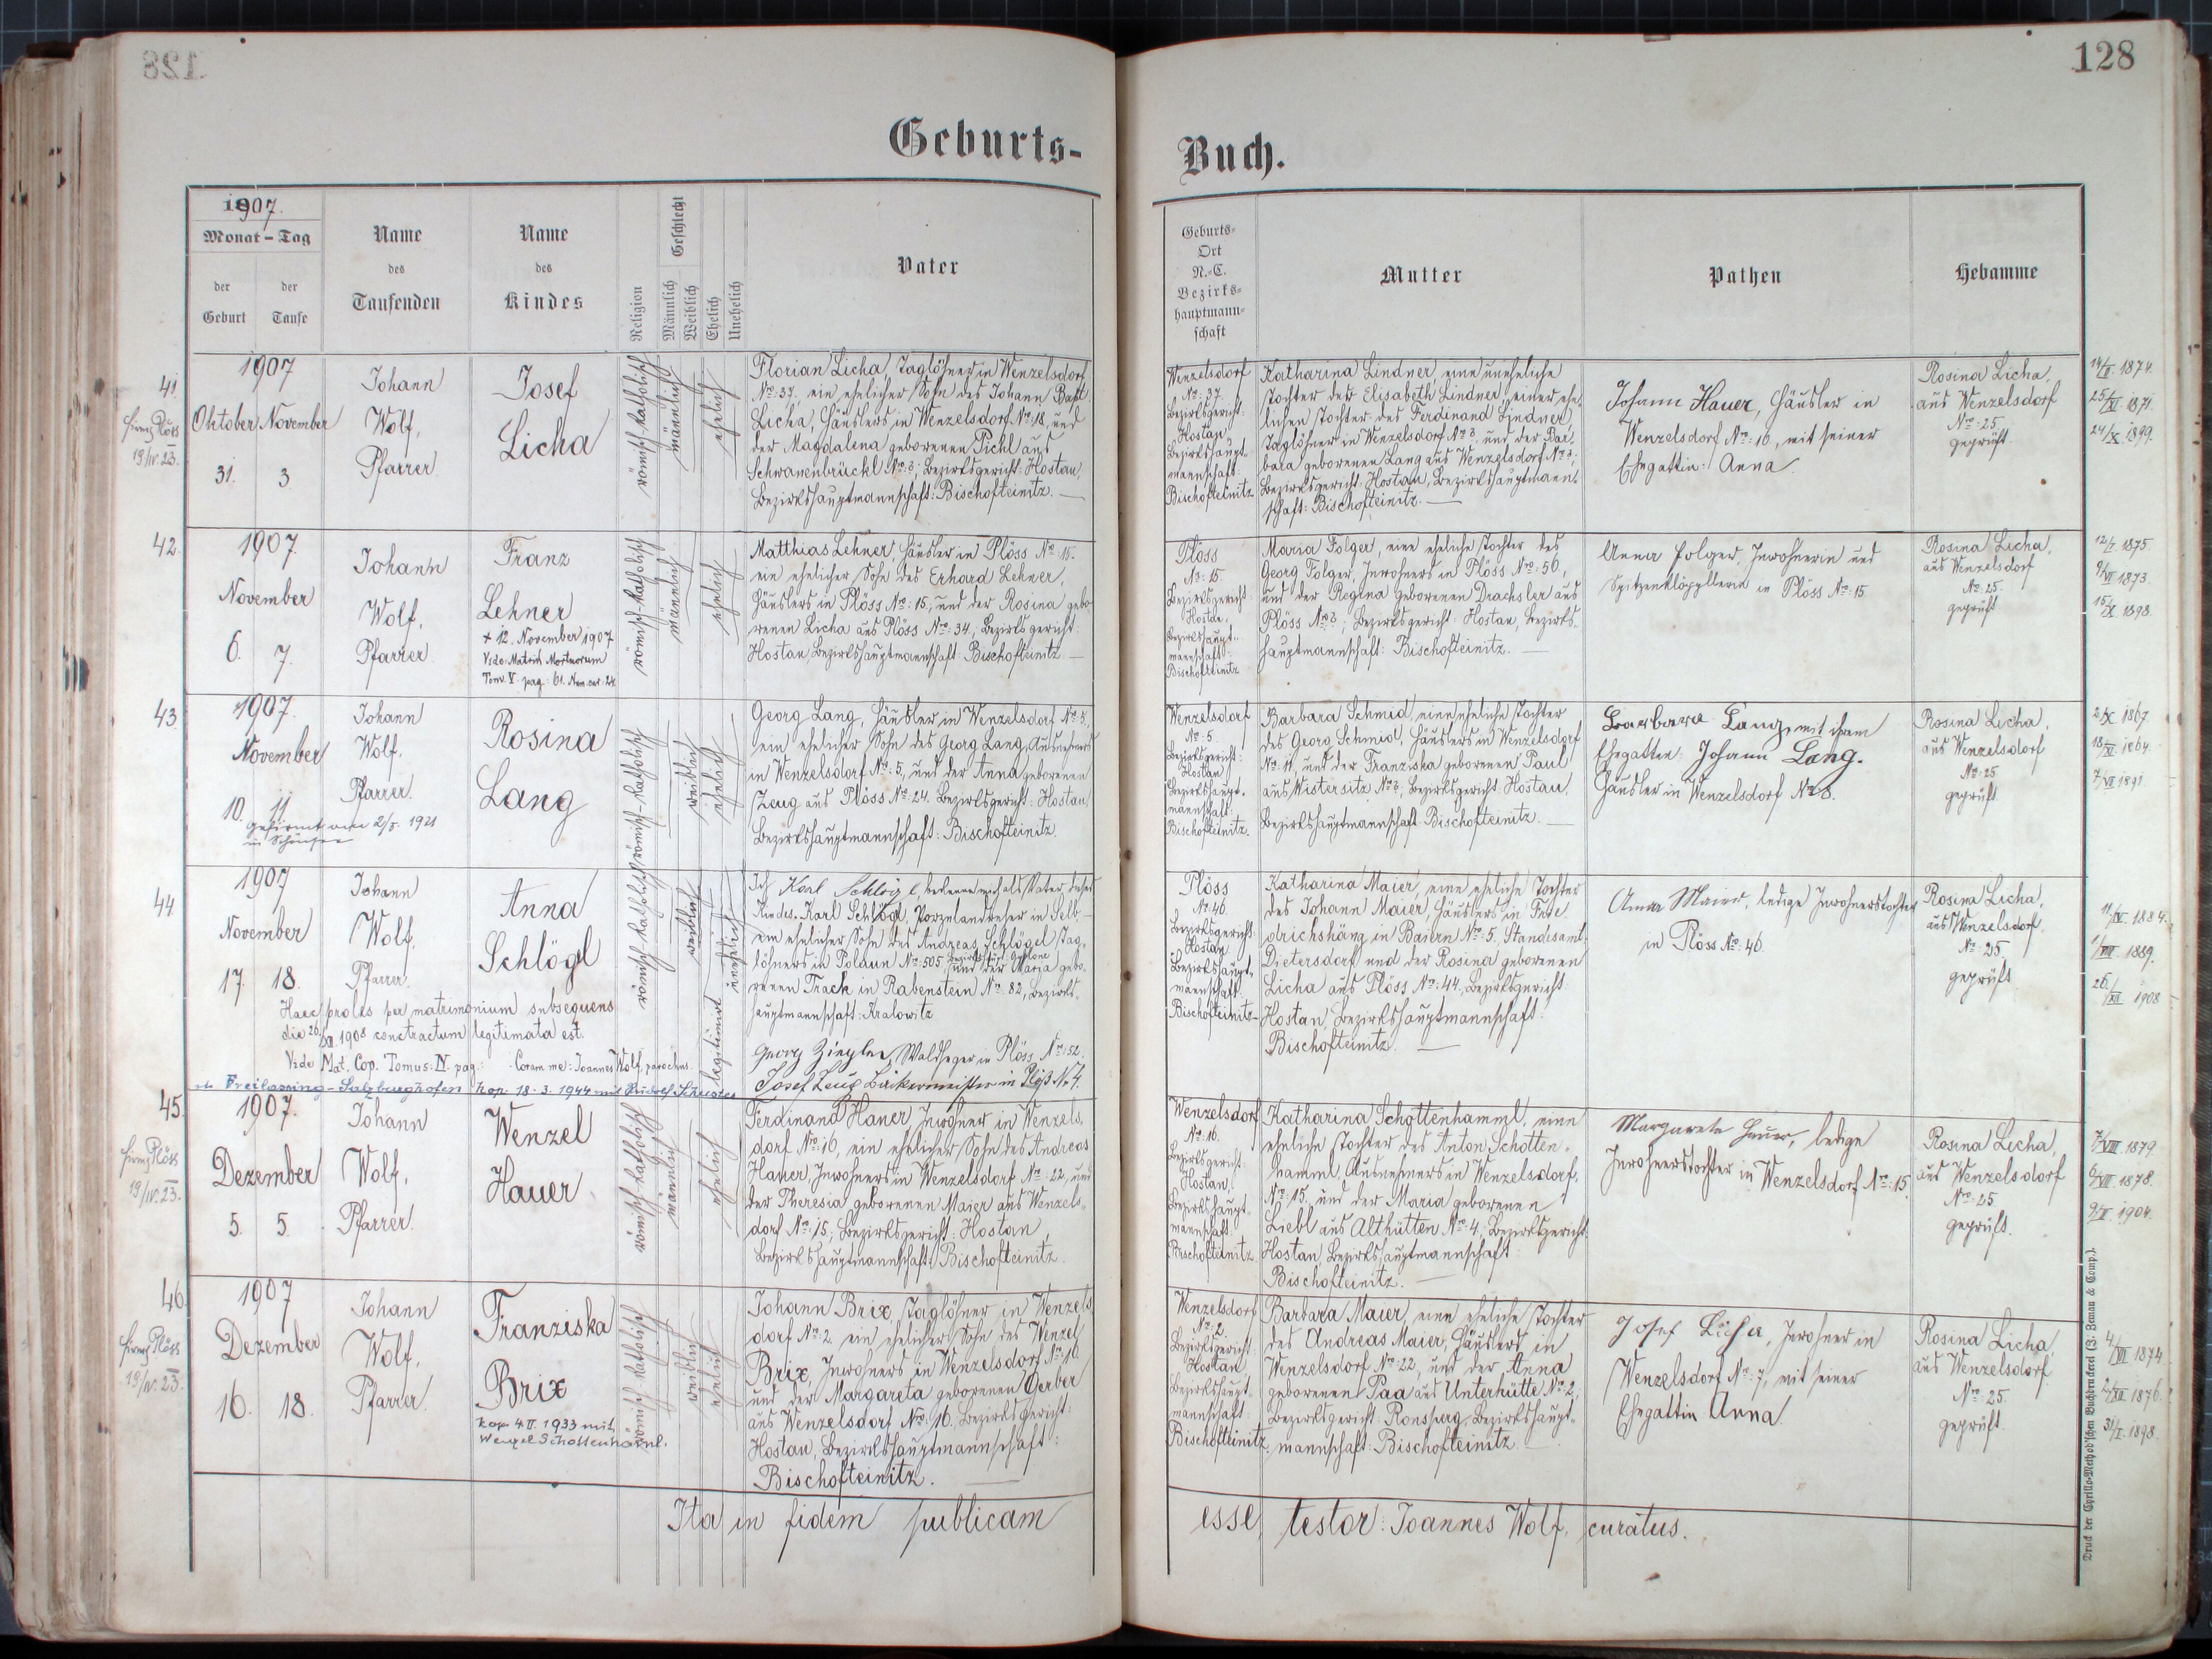 128
Geburts-
Buch.
1907.
Monat - Tag
der Geburt
der Taufe
Name des Taufenden
Name des Kindes
Religion
Geschlecht
Männlich
Weiblich
Ehelich
Unehelich
Vater
Geburts-
Ort
N.-C.
Bezirks-
hauptmann-
schaft
Mutter
Pathen
Hebamme
41.
19/IV. 23.
1907
Oktober November
31. 3.
Johann
Wolf,
Pfarrer.
Josef
Licha
römisch-katholisch
männlich
ehelich
Florian Licha, Taglöhner in Wenzelsdorf
No: 37. ein ehelicher Sohn des Johann Bapt.
Licha, Häuslers in Wenzelsdorf No: 18, und
der Magdalena geborenen Pickl aus
Schwanenbrückl No: ?; Bezirksgericht: Hostau,
Bezirkshauptmannschaft: Bischofteinitz.
Wenzelsdorf
No: 37
Bezirksgericht:
Hostau
Bezirkshaupt-
mannschaft:
Bischofteinitz
Katharina Lindner, eine uneheliche
Tochter der Elisabeth Lindner, einer ehe-
lichen Tochter des Ferdinand Lindner,
Taglöhner in Wenzelsdorf No ?, und der Bar-
bara geborenen Lang aus Wenzelsdorf No ?;
Bezirksgericht: Hostau, Bezirkshauptmann-
schaft: Bischofteinitz.
Johann Hauer, Häusler in
Wenzelsdorf No: 16, mit seiner
Ehegattin: Anna.
Rosina Licha,
aus Wenzelsdorf
No: 25
geprüft.
1874.
25/XI. 1871.
24/X. 1899.
42.
1907.
November
6. 7.
Johann
Wolf,
Pfarrer
Franz
Lehner
+ 12. November 1907
Vide: Matrik Mortuorum
Tom. V. pag.: 61. Num. cur: 24.
römisch-katholisch
männlich
ehelich
Matthias Lehner, Häusler in Plöss No: 15.
ein ehelicher Sohn des Erhard Lehner,
Häuslers in Plöss No: 15, und der Rosina gebo-
renen Licha aus Plöss No: 34; Bezirksgericht:
Hostau, Bezirkshauptmannschaft: Bischofteinitz.
Plöss
No: 15.
Bezirksgericht:
Bezirkshaupt-
mannschaft:
Bischofteinitz
Maria Folger, eine eheliche Tochter des
Georg Folger, Inwohners in Plöss No: 56,
und der Regina geborenen Drachsler aus
Plöss No ?; Bezirksgericht: Hostau, Bezirks-
hauptmannschaft: Bischofteinitz.
Anna Folger, Inwohnerin und
Spitzenklöpplerin in Plöss No: 15
Rosina Licha,
aus Wenzelsdorf
No: 25.
geprüft
1875
1873.
15/X. 1898.
43.
1907.
November
10. 11.
gefirmt am 1921
Johann
Wolf,
Pfarrer.
Rosina
Lang
römisch-katholisch
weiblich
ehelich
Georg Lang, Häusler in Wenzelsdorf No: 5,
ein ehelicher Sohn des Georg Lang, Ausnehmers
in Wenzelsdorf No: 5, und der Anna geborenen
Zeug aus Plöss No: 24. Bezirksgericht: Hostau,
Bezirkshauptmannschaft: Bischofteinitz.
Wenzelsdorf
No: 5
Bezirksgericht:
Hostau
Bezirkshaupt-
mannschaft:
Bischofteinitz.
Barbara Schmid, eine eheliche Tochter
des Georg Schmid, Häuslers in Wenzelsdorf
No: 11, und der Franziska geborenen Paul
aus Mistersitz No ?; Bezirksgericht: Hostau,
Bezirkshauptmannschaft: Bischofteinitz.
Barbara Lang, mit ihrem
Ehegatten: Johann Lang.
Häusler in Wenzelsdorf No 8.
Rosina Licha,
aus Wenzelsdorf
No: 25
geprüft.
1867.
1864.
1891
44.
1907
November
17. 18.
Johann
Wolf,
Pfarrer.
Anna
Schlögl
römisch-katholisch
weiblich
unehelich
legitimirt
Haec proles per matrimonium subsequens
die 26/XII. 1908 contractum legitimata est.
Vide Mat. Cop. Tomus: IV. pag.: Coram me: Joannes Wolf, parochus.
Freilassing-Salzburghofen kop. 18. 3. 1944 mit Rudolf Schuster
Ich Karl Schlögl, bekenne mich als Vater dieses
Kindes. Karl Schlögl, Porzelandreher in Selb,
ein ehelicher Sohn des Andreas Schlögel, Tag-
löhners in No: 505, und der Maria gebo-
renen Track in Rabenstein No: 82, Bezirks-
hauptmannschaft: Kralowitz
Georg Ziegler, Waldheger in Plöss, No: 52.
Josef Zeug Bäckermeister in Plöß No 4.
Plöss
No: 46.
Bezirksgericht:
Hostau
Bezirkshaupt-
mannschaft:
Bischofteinitz
Katharina Maier, eine eheliche Tochter
des Johann Maier, Häuslers in Frie-
drichshäng in Baiern No: 5. Standesamt:
Dietersdorf und der Rosina geborenen
Licha aus Plöss No: 44, Bezirksgericht:
Hostau, Bezirkshauptmannschaft:
Bischofteinitz.
Anna Maier, ledige Inwohnerstochter
in Plöss No: 46.
Rosina Licha,
aus Wenzelsdorf,
No: 25.
geprüft
1884.
1889.
26./XII. 1908
45.
19/IV. 23.
1907.
Dezember
5. 5.
Johann
Wolf,
Pfarrer.
Wenzel
Hauer
römisch-katholisch
männlich
ehelich
Ferdinand Hauer, Inwohner in Wenzels-
dorf No: 16, ein ehelicher Sohn des Andreas
Hauer, Inwohners in Wenzelsdorf No: 22, und
der Theresia geborenen Maier aus Wenzels-
dorf No: 15; Bezirksgericht: Hostau,
Bezirkshauptmannschaft: Bischofteinitz.
Wenzelsdorf
No: 16.
Bezirksgericht:
Hostau,
Bezirkshaupt-
mannschaft:
Bischofteinitz
Katharina Schottenhamml, eine
eheliche Tochter des Anton Schotten-
hamml, Ausnehmers in Wenzelsdorf,
No: 15, und der Maria geborenen
Liebl aus Althütten No: 4, Bezirksgericht:
Hostau, Bezirkshauptmannschaft
Bischofteinitz.
Margareta Hauer, ledige
Inwohnerstochter in Wenzelsdorf No: 15.
Rosina Licha,
aus Wenzelsdorf
No: 25
geprüft.
7/VIII. 1879
1878.
1904.
46.
19/IV. 23.
1907
Dezember
16. 18.
Johann
Wolf,
Pfarrer.
Franziska
Brix
kop. 4 II 1933 mit
Wenzel Schottenhaml.
römisch-katholisch
weiblich
ehelich
Johann Brix, Taglöhner in Wenzels-
dorf No: 2, ein ehelicher Sohn des Wenzel
Brix, Inwohners in Wenzelsdorf No: 16
und der Margareta geborenen Gerber
aus Wenzelsdorf No: 16. Bezirksgericht:
Hostau, Bezirkshauptmannschaft:
Bischofteinitz.
Wenzelsdorf
No: 2.
Bezirksgericht:
Hostau
Bezirkshaupt-
mannschaft:
Bischofteinitz
Barbara Maier, eine eheliche Tochter
des Andreas Maier, Häuslers in
Wenzelsdorf No: 22, und der Anna
geborenen Paa aus Unterhütte No: 2,
Bezirksgericht: Ronsperg, Bezirkshaupt-
mannschaft: Bischofteinitz
Josef Licha, Inwohner in
Wenzelsdorf No: 7, mit seiner
Ehegattin Anna.
Rosina Licha,
aus Wenzelsdorf
No: 25.
geprüft.
1874
1876.
31/I. 1898.
Ita in fidem publicam
esse testor: Joannes Wolf, curatus.
Druck der Cyrillo-Method'schen Buchdruckerei (J. Zeman & Comp.).